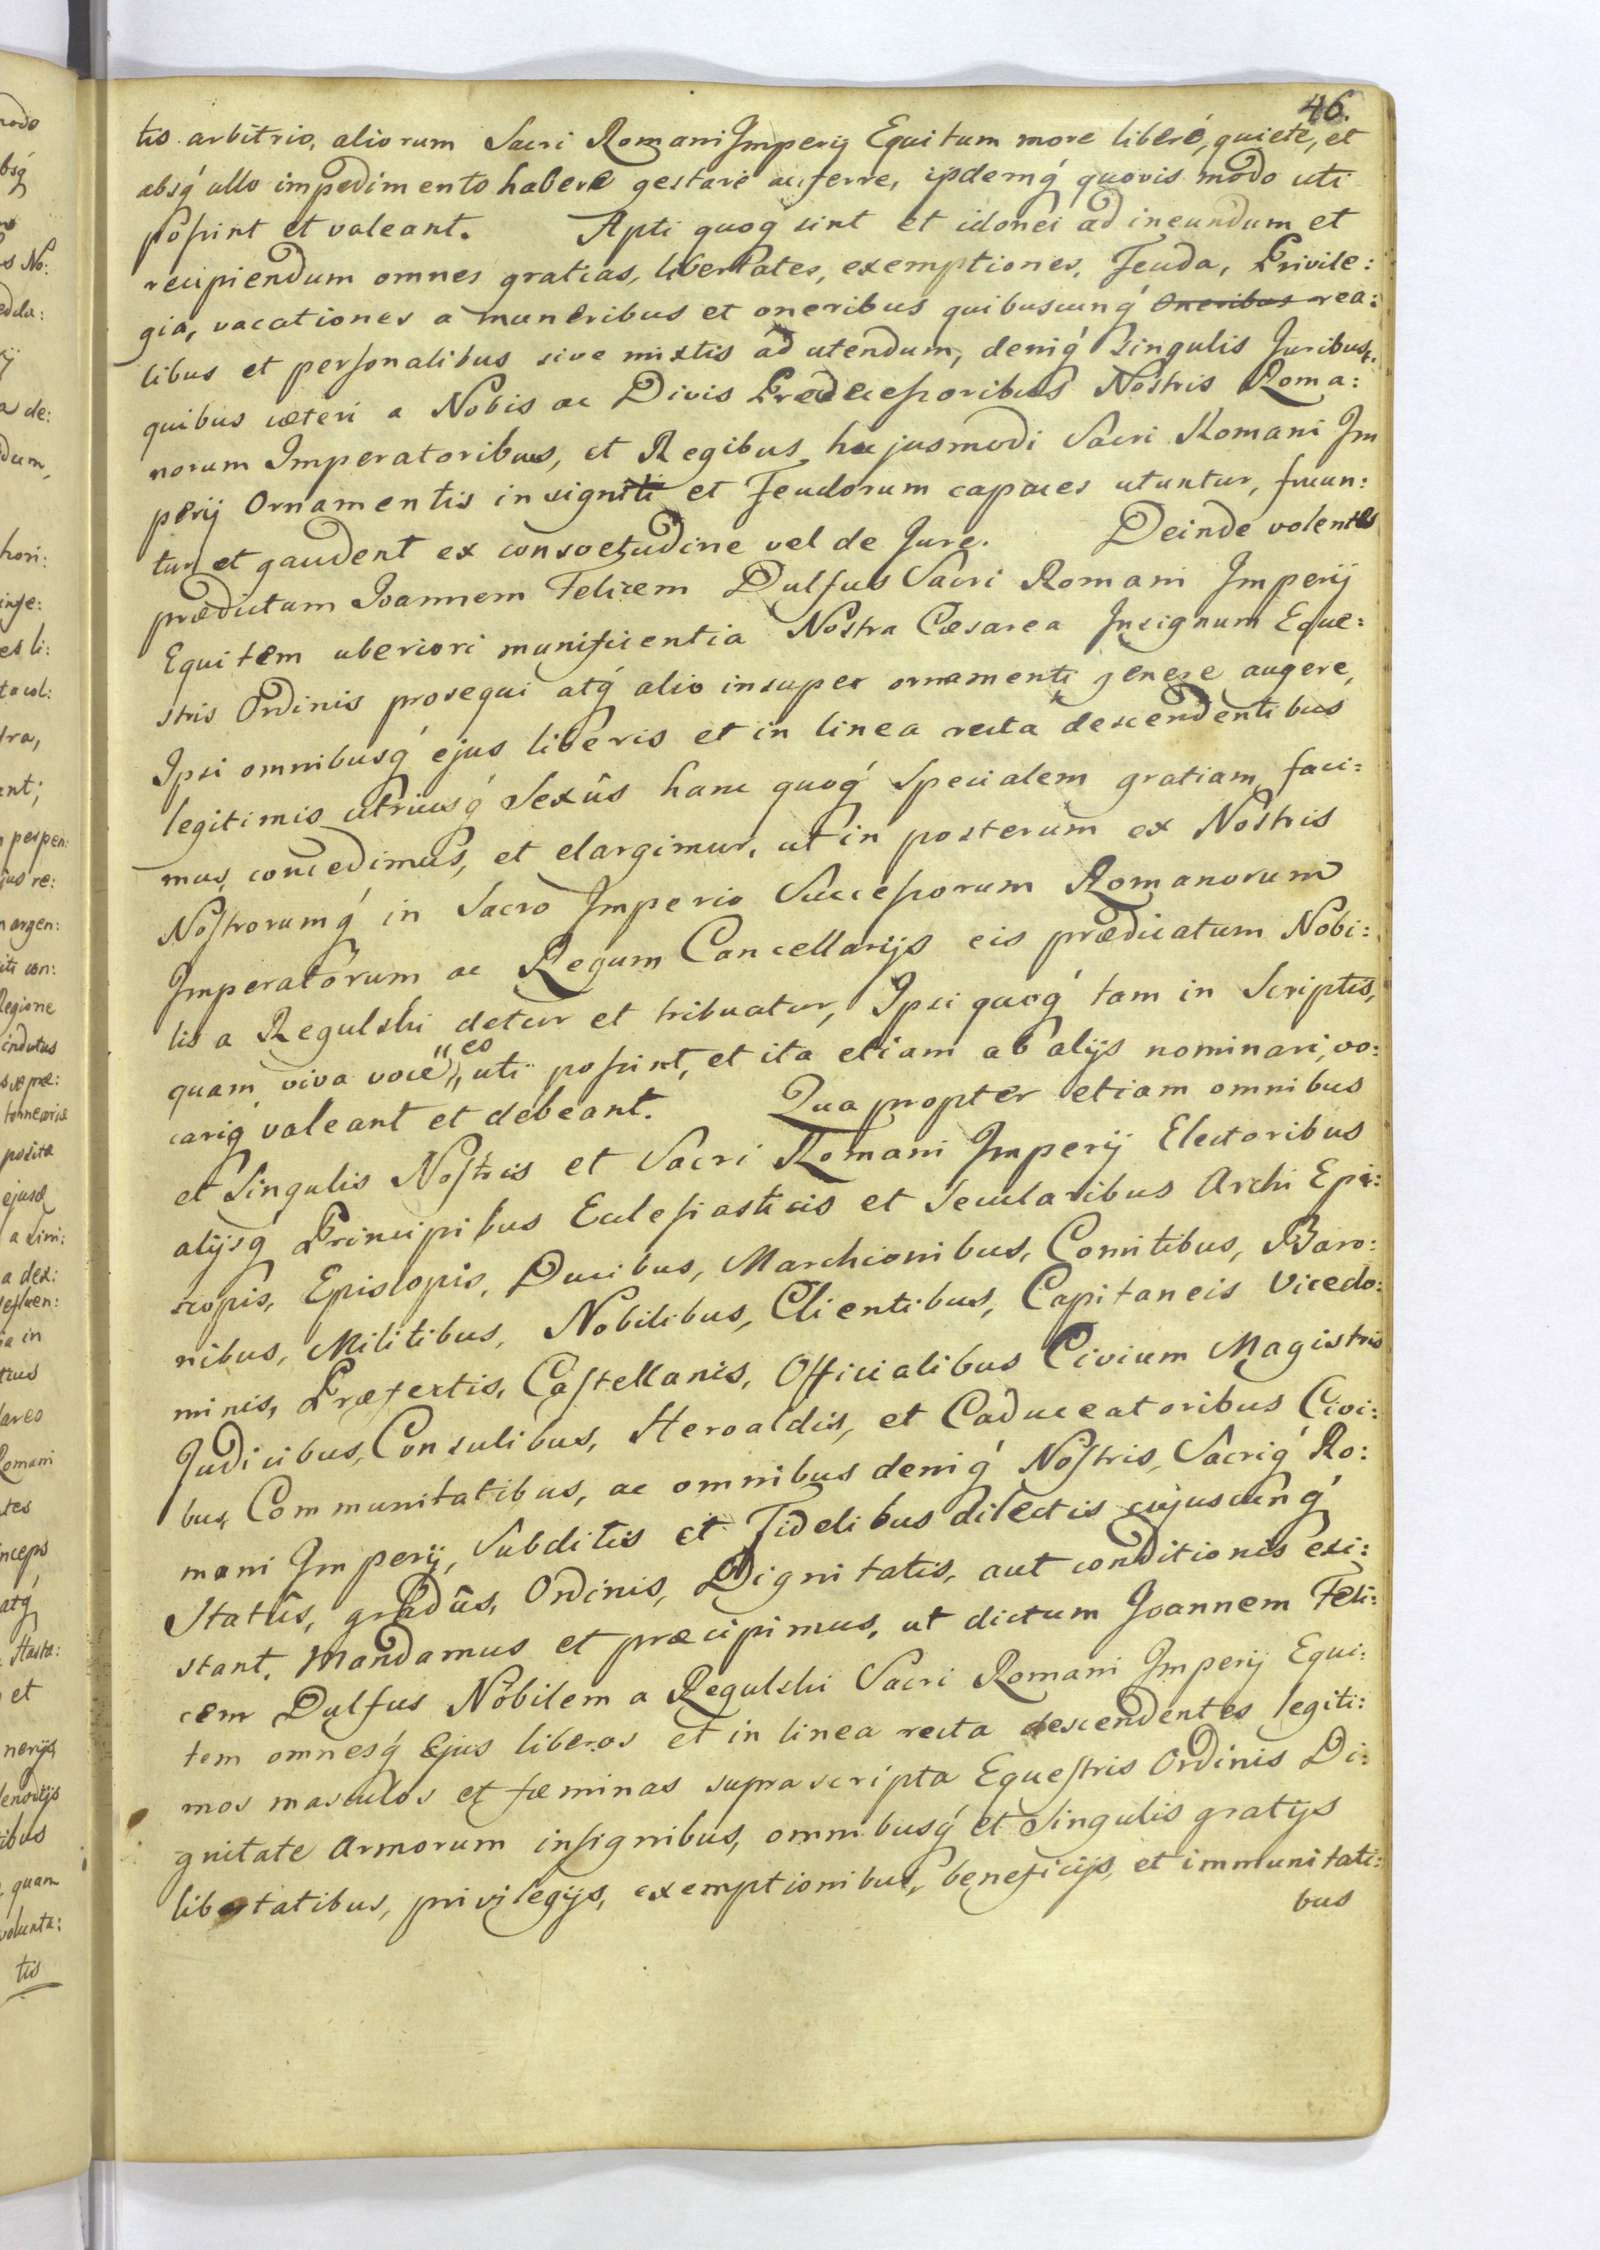 46.
tis arbitrio, aliorum Sacri Romani Imperij Equitum more liberé, quiete, et
absq́ ullo impedimento habere gestare ac ferre, ipdemq́ quovis modo uti
poſsint et valeant. Apti quoq sint et idonei ad ineundum et
recipiendum omnes gratias, libertates, exemptiones, Feuda, Privile:
gia, vacationes a muneribus et oneribus quibuscunq́ oneribus rea:
libus et perſonalibus sive mixtis ad utendum, deniq́ singulis Juribus,
quibus cæteri a Nobis ac Divis Prædeceſsoribus Nostris Roma:
norum Imperatoribus, et Regibus hujusmodi Sacri Romani Im
perij Ornamentis insigniti et Feudorum capaces utuntur, fruun:
tur et gaudent ex consvetudine vel de Jure. Deinde volentes
prædictum Joannem Felicem Dulfus Sacri Romani Imperij
Equitem uberiori munificientia Nostra Cæsarea Insignum Eque:
stris Ordinis prosequi atq́ alio insuper ornamenti genere augere,
Ipsi omnibusq́ ejus liberis et in linea recta descendentibus
legitimis utriusq́ Sexûs hanc quoq́ Specialem gratiam faci:
mus, concedimus, et elargimur, ut in posterum ex Nostris
Noſtrorumq́ in Sacro Imperio Succeſsorum Romanorum
Imperatorum ac Regum Cancellarijs eis prædicatum Nobi:
lis a Regulski detur et tribuatur, Ipsi quoq́ tam in Scriptis,
quam viva voce, eo uti poſsint, et ita etiam ab alijs nominari, vo:
cariq́ valeant et debeant. Qua propter etiam omnibus
et Singulis Noſtris et Sacri Romani Imperij Electoribus
alijsq́ Principibus Eccleſiasticis et Secularibus Archi Epi:
scopis, Episcopis, Ducibus, Marchionibus, Comitibus, Baro:
nibus, Militibus, Nobilibus, Clientibus, Capitaneis Vicedo:
minis, Præfectis, Caſtellanis, Officialibus Civium Magistris
Judicibus, Consulibus, Heroaldis, et Caduceatoribus Civi:
bus, Communitatibus, ac omnibus deniq́ Noſtris, Sacriq́ Ro:
mani Imperij, Subditis et Fidelibus dilectis cujuscunq́
Statûs, gradûs, Ordinis, Dignitatis, aut conditionis exi:
stant, Mandamus et præcipimus, ut dictum Joannem Feli:
cem Dulfus Nobilem a Regulski Sacri Romani Imperij Equi:
tem omnesq́ Ejus liberos et in linea recta descendentes legiti:
mos masculos et fœminas suprascripta Equeſtris Ordinis Di:
gnitate Armorum inſignibus, omnibusq́ et Singulis gratijs
libertatibus, privilegijs, exemptionibus, beneficijs, et immunitati:
bus